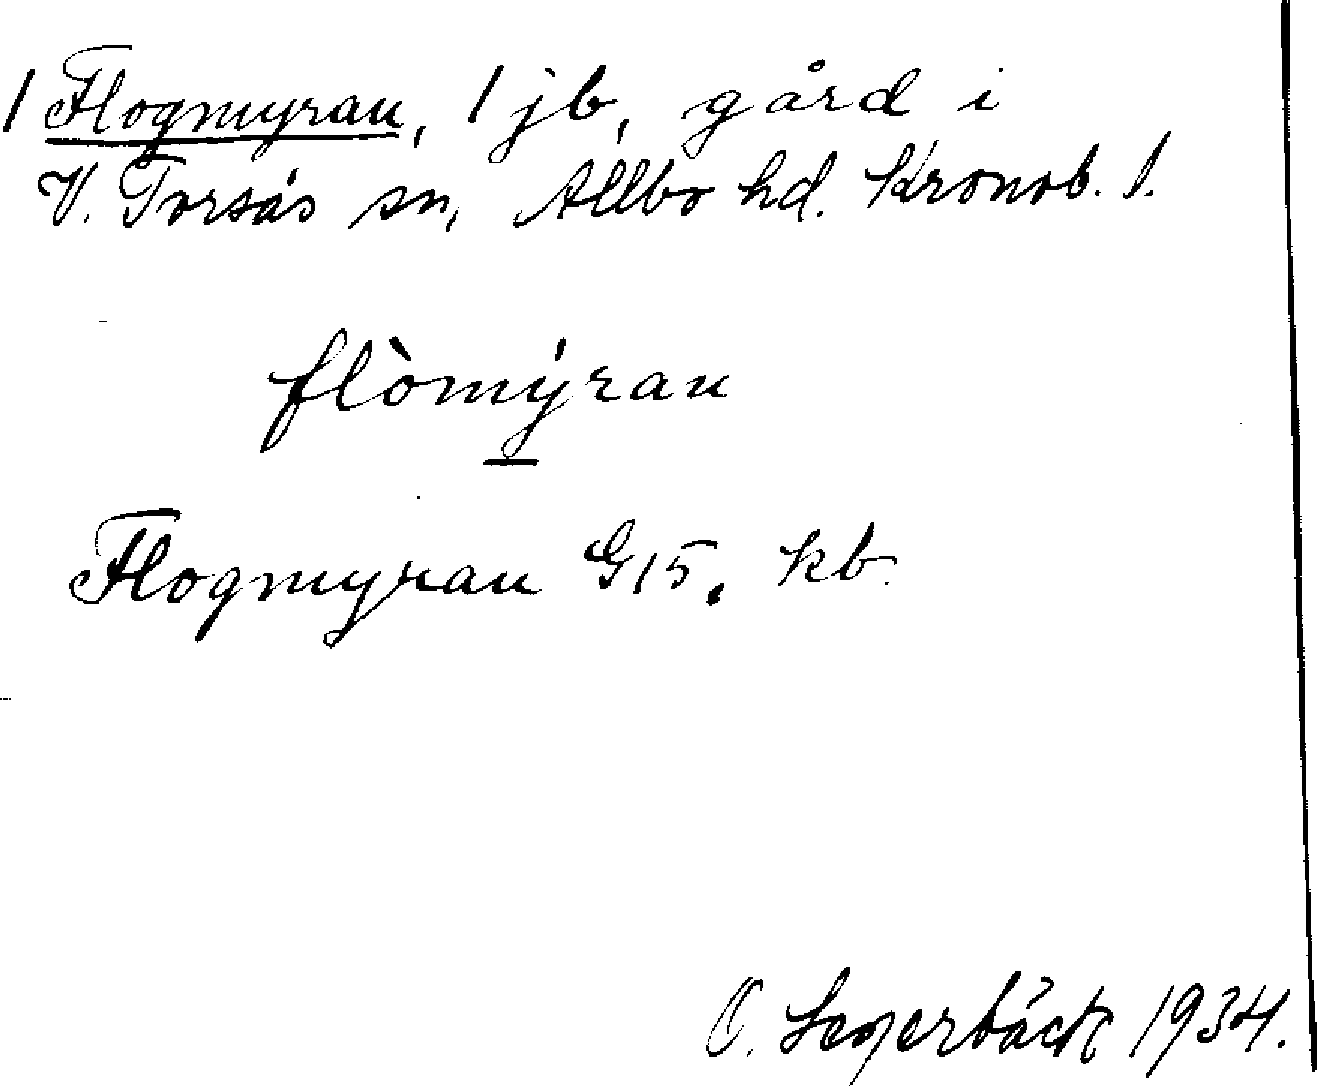 1 Flogmyran, 1 jb, gård i
V. Torsås sn, Allbo hd. Kronob. l.
flòmýran
Flogmyran G15. kb.
O. Segerbäck 1934.